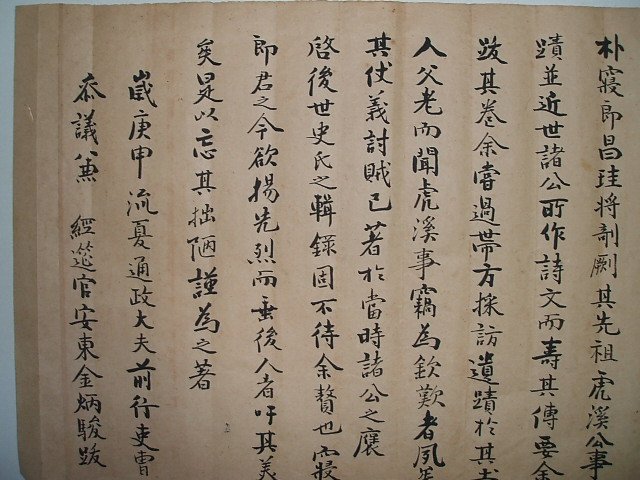 朴寢郎昌珪將剞劂其先祖虎溪公事
蹟並近世諸公所作詩文而壽其傳要余
跋其卷余嘗過帶方採訪遺蹟於其
人父老而聞虎溪事竊為欽歎者夙
其仗義討賊已著於當時諸公之褒
啓後世史氏之輯錄固不待余贅也寢
郎君之今欲揚先烈而垂後人者吁其美
矣是以忘其拙陋謹為之著
歲庚申流夏通政大夫前行吏曹
參議兼 經筵官安東金炳駿跋